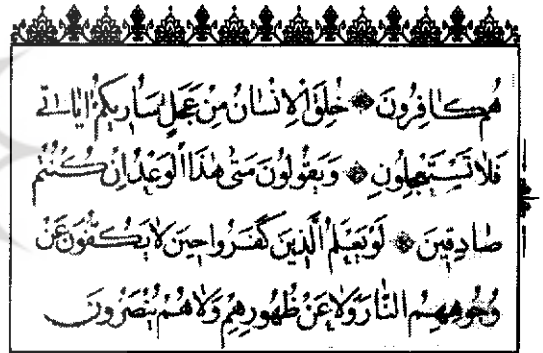 هُمْ كَافِرُونَ ۞ خُلِقَ الْاِنْسَانُ مِنْ عَجَلٍ سَأُرِيكُمْ اٰيَاتِي
فَلَا تَسْتَعْجِلُونِ ۞ وَيَقُولُونَ مَتٰى هٰذَا الْوَعْدُ اِنْ كُنْتُمْ
صَادِقِينَ ۞ لَوْ يَعْلَمُ الَّذِينَ كَفَرُوا حِينَ لَا يَكُفُّونَ عَنْ
وُجُوهِهِمُ النَّارَ وَلَا عَنْ ظُهُورِهِمْ وَلَا هُمْ يُنْصَرُونَ